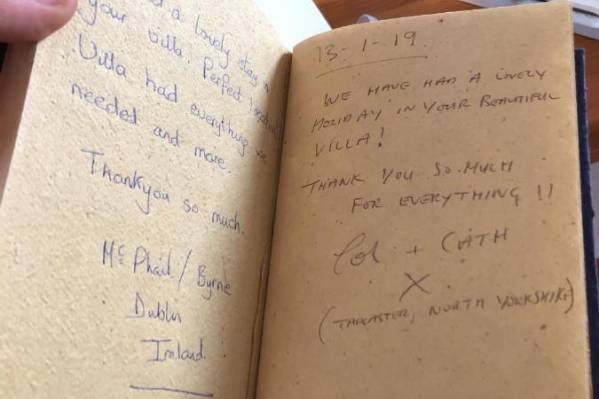 had a lovely stay in
your villa. Perfect location
Villa had everything we
needed and more.
Thankyou so much.
Mc Phail / Byrne
Dublin
Ireland
13-1-19.
WE HAVE HAD A LOVELY
HOLIDAY IN YOUR BEAUTIFUL
VILLA!
THANK YOU SO MUCH
FOR EVERYTHING !!
Col + CATH
X
(TADCASTER, NORTH YORKSHIRE)